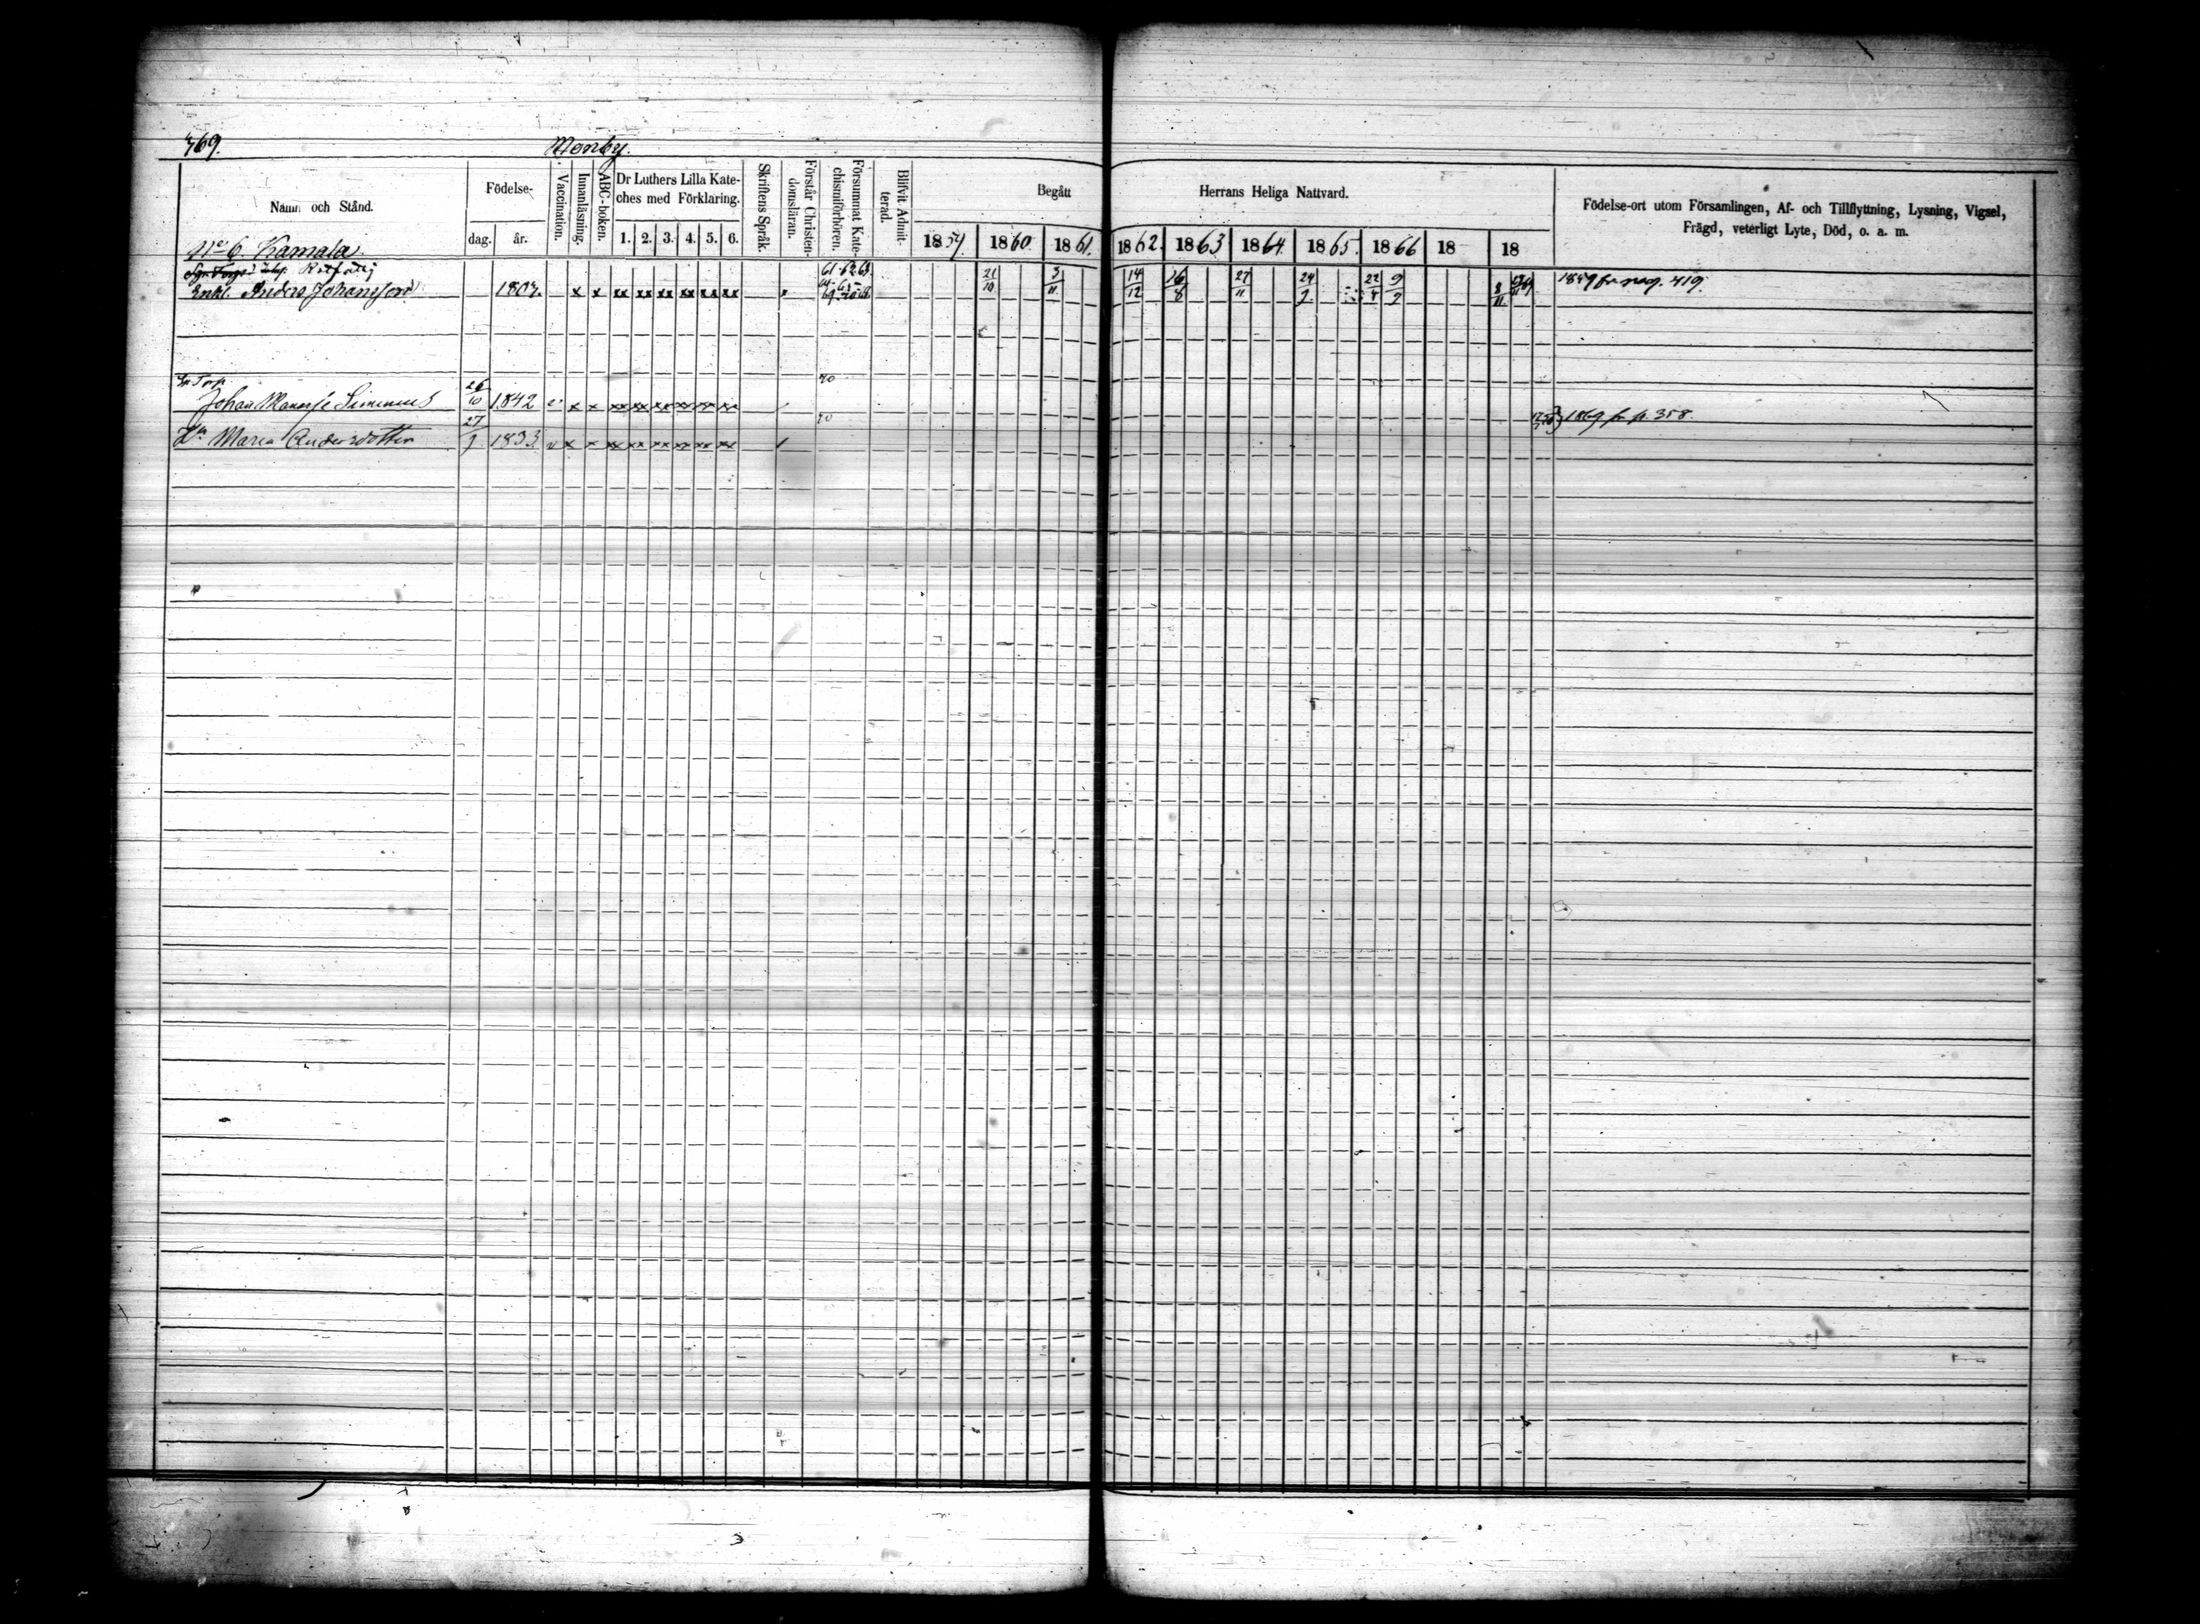 369.
Monby.
Namn och Stånd.
Födelse-
dag. år.
Vaccination.
Innanläsning.
ABC-boken.
Dr Luthers Lilla Kate-
ches med Förklaring.
1. 2. 3. 4. 5. 6.
Skriftens Språk.
Förstår Christen-
domsläran.
Försummat Kate-
chismiförhören.
Blifvit Admit-
terad.
Begått Herrans Heliga Nattvard.
1859. 1860. 1861. 1862. 1863 1864. 1865. 1866 18 18
Födelse-ort utom Församlingen, Af- och Tillflyttning, Lysning, Vigsel,
Frägd, veterligt Lyte, Död, o. a. m.
No 6. Kamala.
61-62-63
Enkl. Anders Johansson 1807. x x xx xx xx xx xx xx 21/10 3/11 14/12 16/8 27/11 24/9 22/4 9/9 8/11 1859 fr. pag. 419.
Torp. 26/10 70
Johan 1842 v x x xx xx xx xx xx xx
27/9 70 1869 fr. p. 358.
Maria Andersdotter 1833. v x x xx xx xx xx xx xx